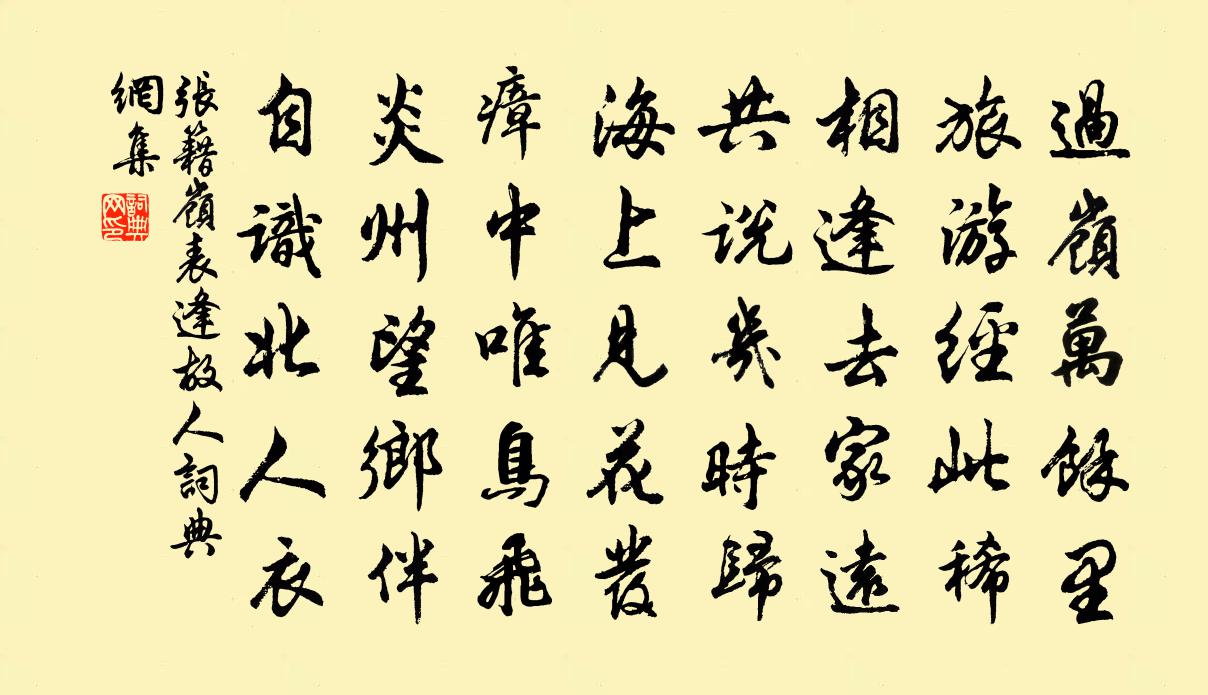 過嶺萬餘里
旅游經此稀
相逢去家遠
共説幾時歸
海上見花發
瘴中唯鳥飛
炎州望鄉伴
自識北人衣
張籍嶺表逢故人詞典
網集
詞典
网印